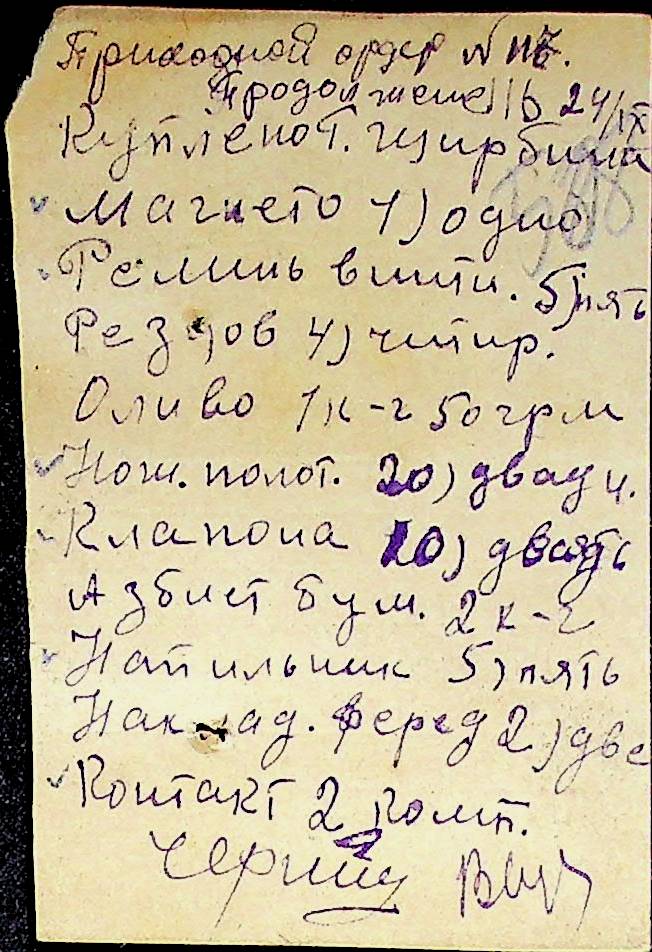 Приходной ордер № 117.
Продолжение 24/IX
Куплено т.
✓ Магнето 1) одно
Реминь винти. 5) пять
Резцов 4) читир.
Оливо 1 к-г 50 грм
✓ Нож. полот. 20) двадц.
Клапона 20) двадть
Азбист бум. 2 к-г
✓ Напильник 5) пять
Наклад. феред 2) две
✓ Контакт 2 комп.